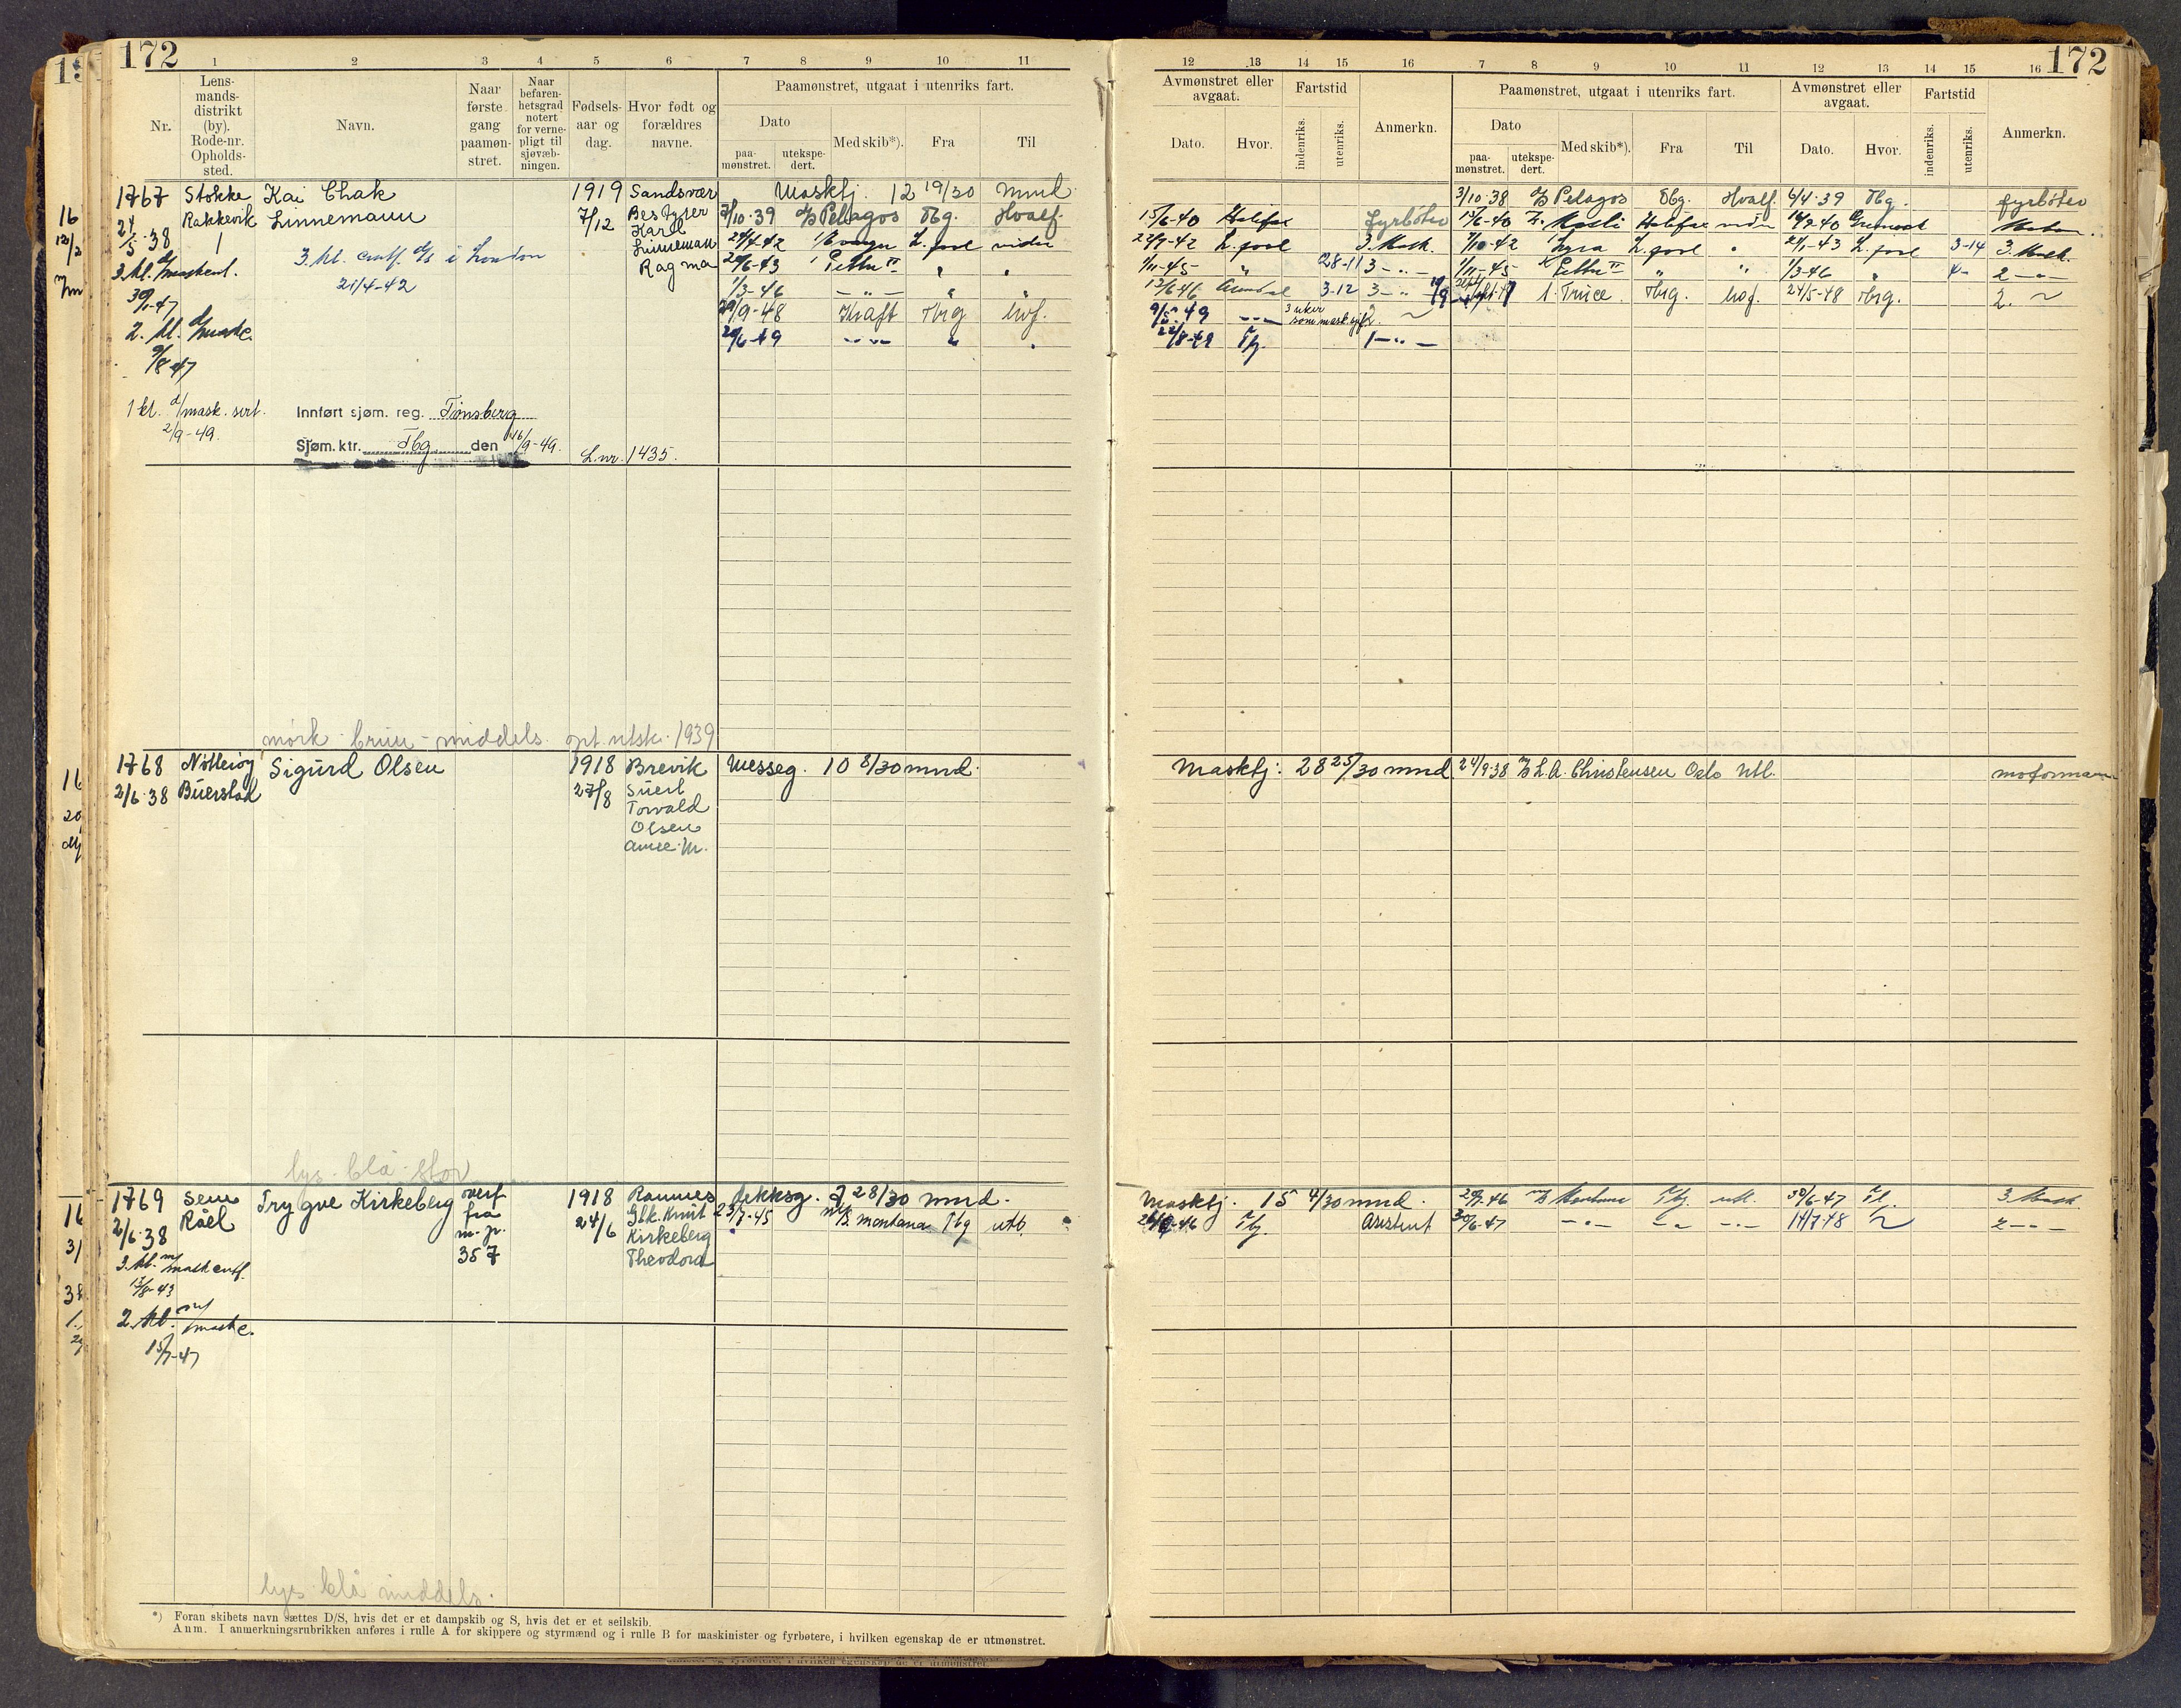 172
1 2 3 4 5 6 7 8 9 10 11
Nr.
Lens-
mands-
distrikt
(by).
Rode-nr.
Opholds-
sted.
Navn.
Naar
første
gang
paamøn-
stret.
Naar
befaren-
hetsgrad
notert
for verne-
pligt til
sjøvæb-
ningen.
Fødsels-
aar og
dag.
Hvor født og
forældres
navne.
Paamønstret, utgaat i utenriks fart.
Dato
paa-
mønstret.
utekspe-
dert.
Med skib*).
Fra
Til
1767 Stokke Kai Chak 1919 Sandsvær Maskfj. 12 19/30 mnd
24/5-38 Rakkevik Linnemann 7/12 Bestyrer 7/10-39 Pelagos Tbg. Hvalf.
1 Karl
Linneman 24/4-42 L.pool videre
3. kl. d/maskcert. 3. kl. cert. i London Ragma 20/6-43 Petter II " "
21/4-42 1/3-46 — " — " "
30/1-47 29/9-48 Kraft Tbrg hvf.
2. kl. d/maskc. 20/6-49
9/8-47
1 kl. d/mask. sert. Innført sjøm. reg. Tønsberg
2/9-49. Sjøm. ktr. Tbg den 16/9-49. L.nr. 1435.
mørk - brun - middels. opt. utsk. 1939
1768 Nøtterøy Sigurd Olsen 1918 Brevik Messeg. 10 8/30 mnd.
2/6-38 Buerstad 27/8
Torvald
Olsen
lys - blå - stor
1769 Sem Trygve Kirkeberg overf 1918 Ramnes dekksg. 7 28/30 mnd.
2/6-38 Råel fra 24/6 Gbk. Knut 23/7-45 Montana Tbg utl.
m.p. Kirkeberg
3. kl. m/maskcert. 357 Theodora
13/8-43
2. kl. m/maskc.
15/7-47
lys blå middels.
*) Foran skibets navn sættes D/S, hvis det er et dampskib og S, hvis det er et seilskib.
Anm. I anmerkningsrubrikken anføres i rulle A for skippere og styrmænd og i rulle B for maskinister og fyrbøtere, i hvilken egenskap de er utmønstret.
172
12 13 14 15 16 7 8 9 10 11 12 13 14 15 16
Avmønstret eller
avgaat.
Dato.
Hvor.
Fartstid
indenriks.
utenriks.
Anmerkn.
Paamønstret, utgaat i utenriks fart.
Dato
paa-
mønstret.
utekspe-
dert.
Med skib*).
Fra
Til
Avmønstret eller
avgaat.
Dato.
Hvor.
Fartstid
indenriks.
utenriks.
Anmerkn.
3/10-38 Pelagos Tbg. Hvalf. 6/4-39 Tbg. fyrbøter
15/6-40 Halifax fyrbøter 14/6-40 Halifax
29/9-42 L.pool 3. Mask. 7/10-42 Lyra L.pool " 21/1-43 L.pool 3-14 3. Mask.
1/11-45 " 28-11 3 — " — 1/11-45 Petter II " " 1/3-46 " 2 — " —
13/6-46 3-12 3 — " — Truce Tbrg. hvf. 24/5-48 Tbrg. 2. ~
9/5-49 — " — 3 uker som mask.
22/8-49 Tbg. 1 — " —
Maskfj: 28 25/30 mnd 24/9 38 L. A. Christensen Oslo Utl. moformann
Maskfj. 15 4/30 mnd. Montana Tbg. utl. 30/6-47 Tbg. 3. Mask.
Tbg. Assistent 30/6-47 — " — — " — — " — 14/7-48 2 — " —